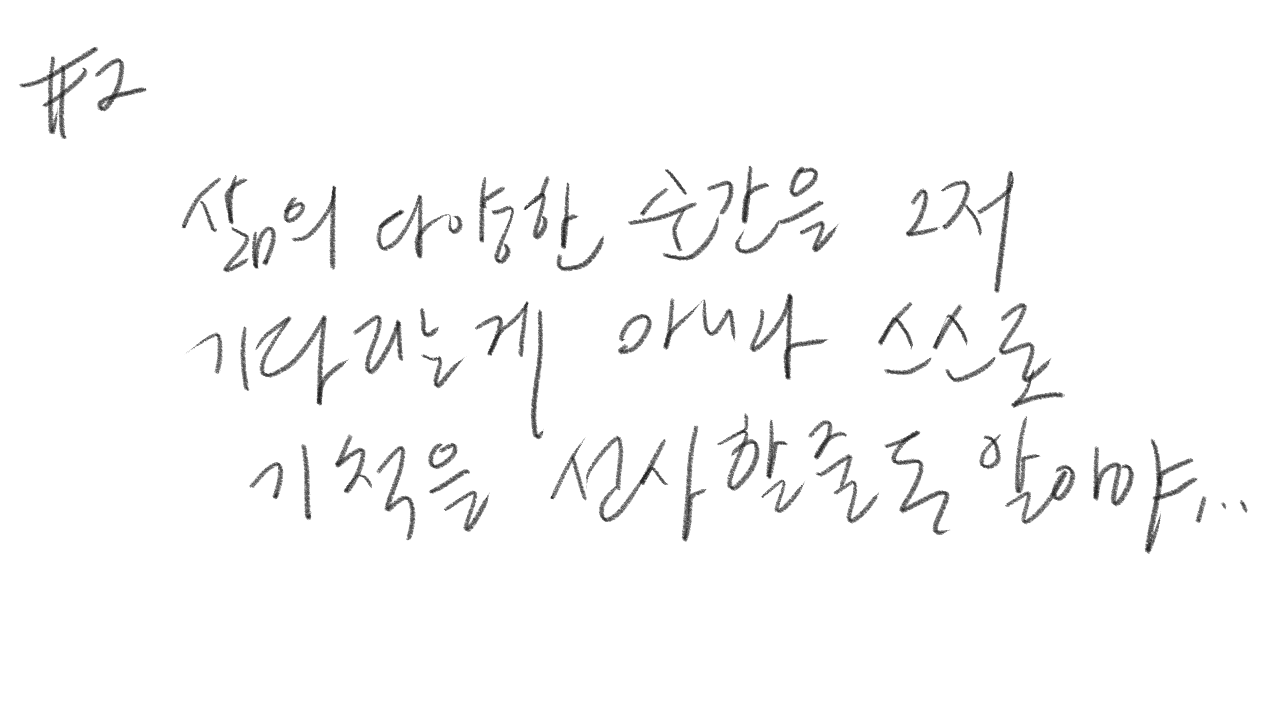 #2
삶의 다양한 순간을 그저
기다리는게 아니라 스스로
기적을 선사할줄도 알아야...